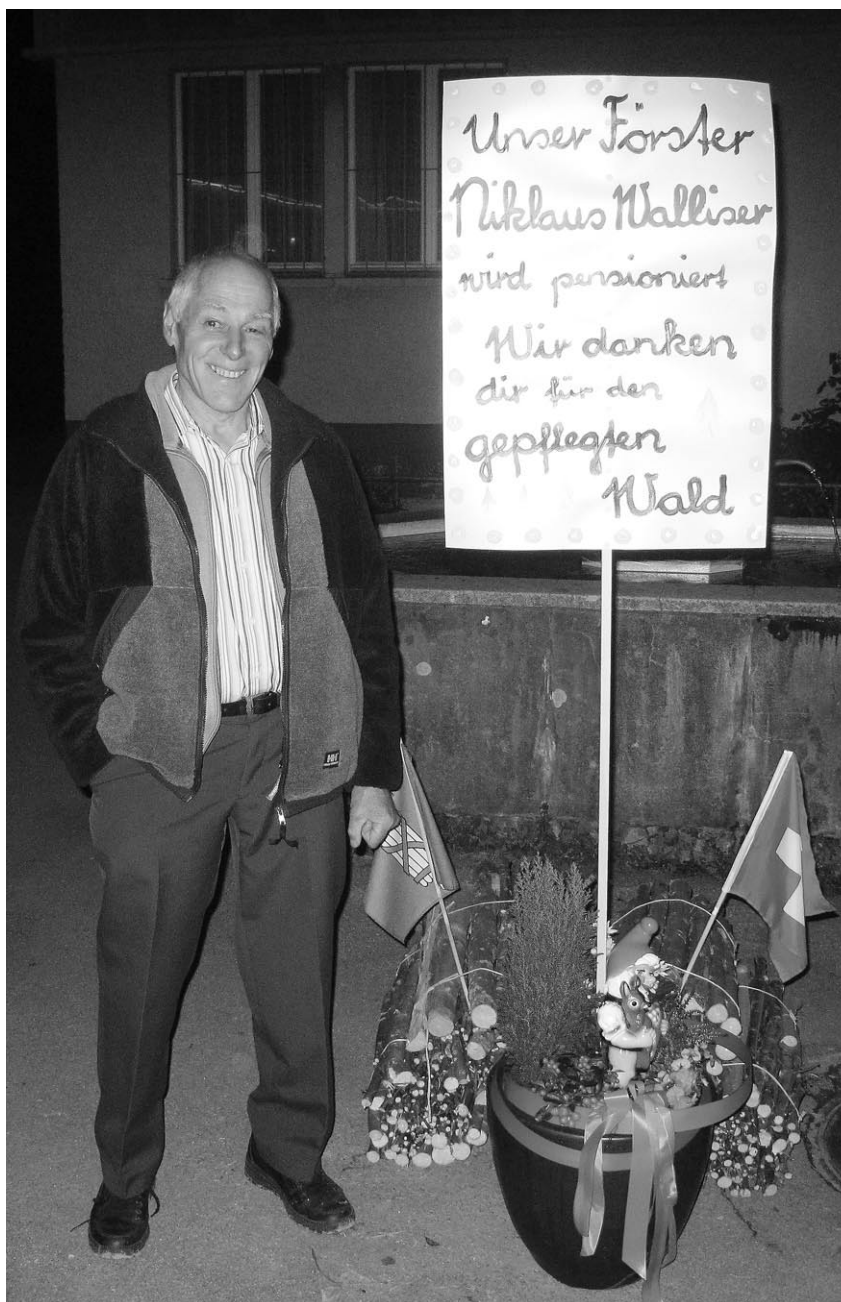 Unser Förster
Niklaus Walliser
wird pensioniert
Wir danken
dir für den
gepflegten
Wald
HH